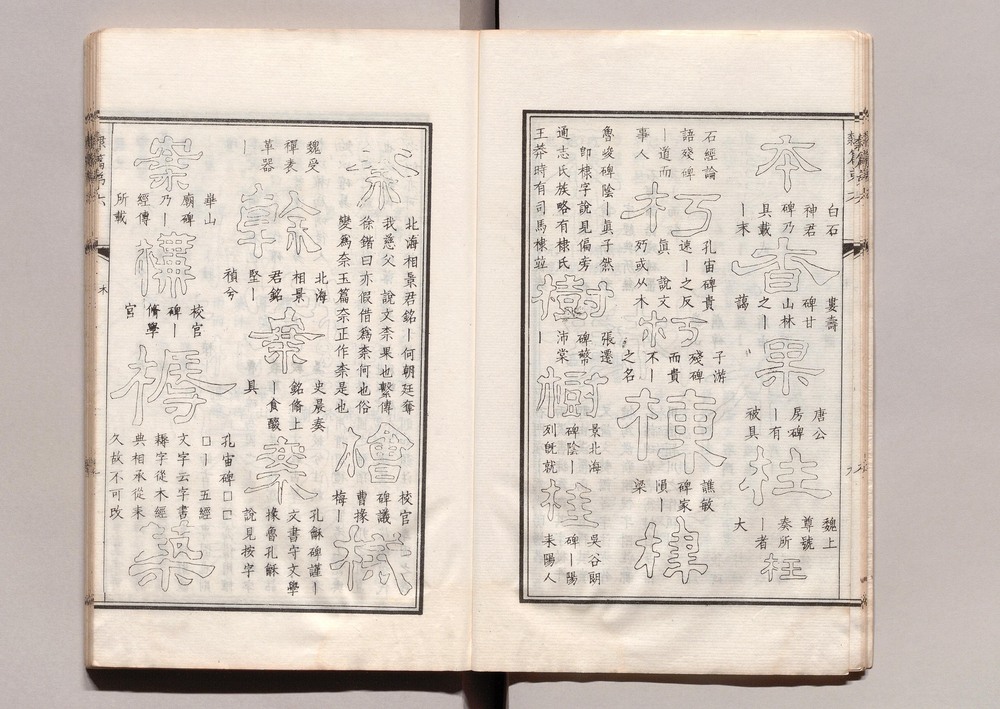 本
白石
神君
碑乃
具載
—末
杳
婁壽
碑甘
山林
之—
藹
果
唐公
房碑
—有
被具
枉
魏上
尊號
奏所
—者
大
枉
石經論
語殘碑
—道而
事人
朽
孔宙碑貴
速—之反
眞 說文
歺或从木
朽
子游
殘碑
而貴
不—
之名
棟
譙敏
碑家
隕—
梁
棣
魯峻碑陰—眞子然
即棣字說見偏旁
通志氏族略有棣氏
王莽時有司馬棣竝
樹
張遷
碑幣
沛棠
—
樹
景北海
碑陰—
列旣就
桂
吳谷朗
碑—陽
耒陽人
柰
北海相景君銘—何朝廷奪
我慈父 說文柰果也繫傳
徐鍇曰亦假借爲柰何也俗
變爲奈玉篇柰正作柰是也
檜
校官
碑議
曹掾
梅—
魏受
禪表
革器
—
榦
北海
相景
君銘
堅—
禎兮
案
史晨奏
銘脩上
—食醊
具
案
孔龢碑謹—
文書守文學
掾魯孔龢
說見按字
案
崋山
廟碑
乃—
經傳
所載
構
校官
碑—
脩學
官
槈
孔宙碑□□
□— 五經
文字云字書
耨字從木經
典相承從耒
久故不可改
築